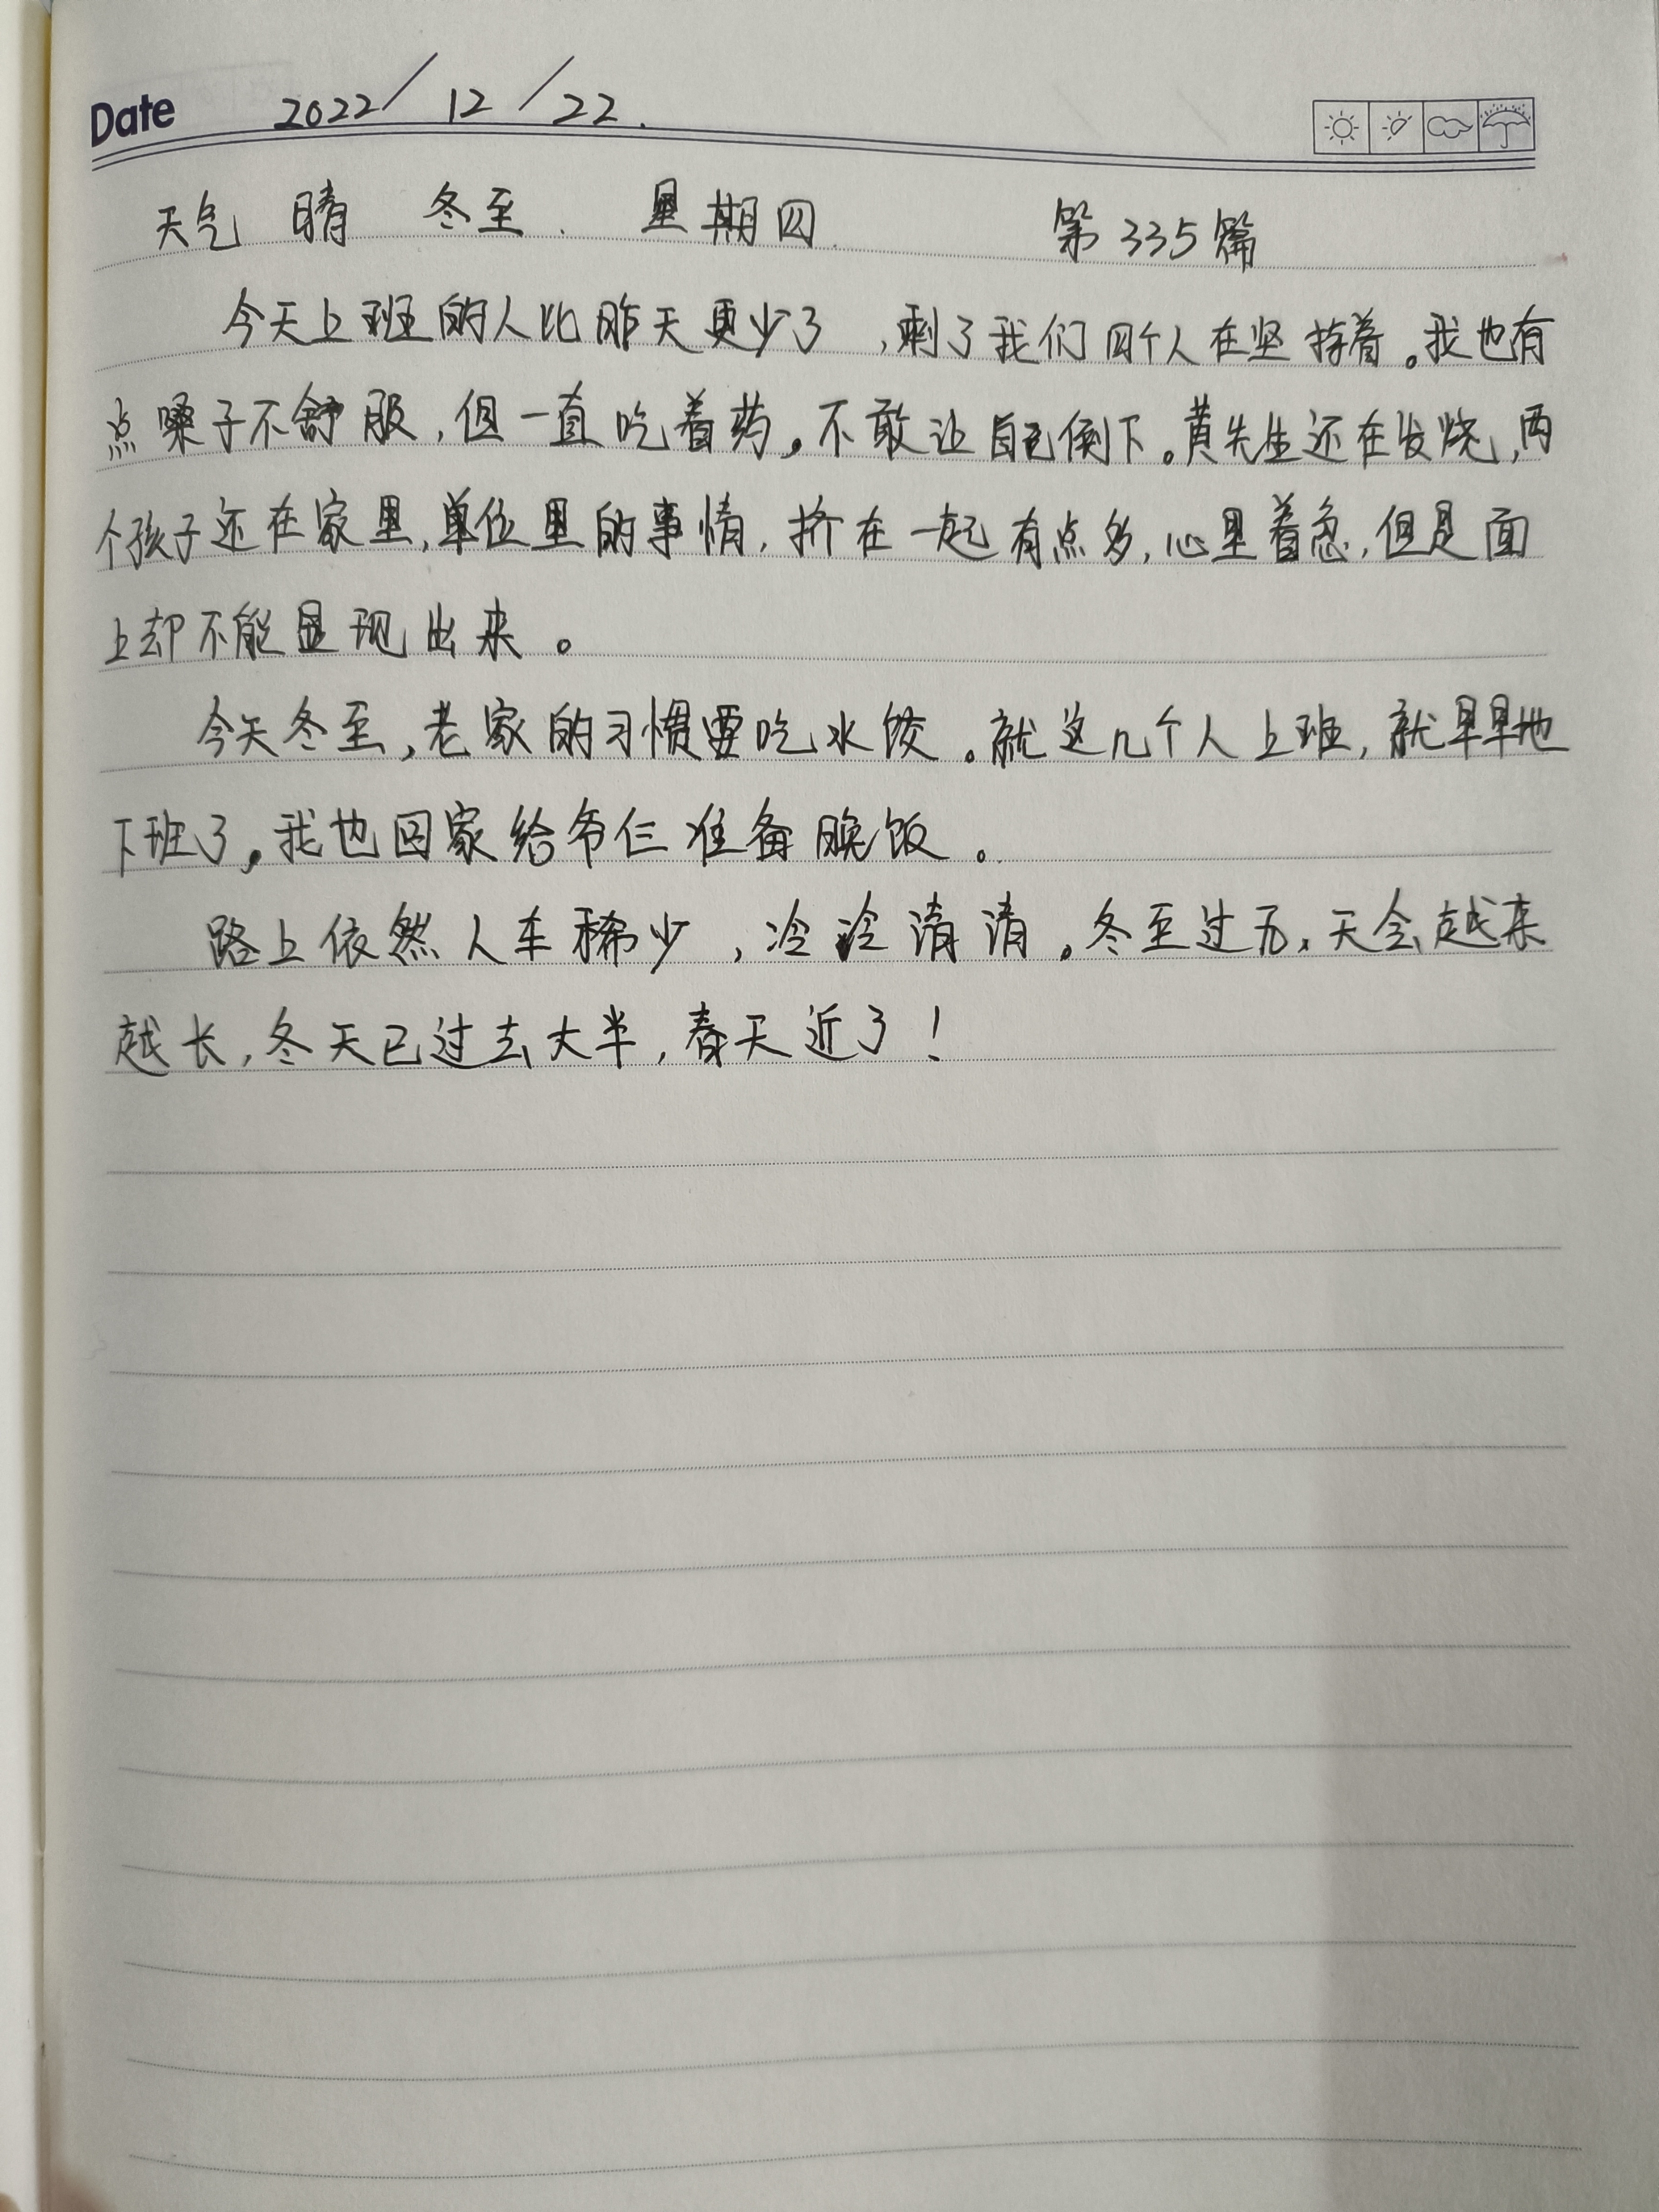 Date 2022/12/22.
天气 晴 冬至. 星期四. 第335篇
今天上班的人比昨天更少了,剩了我们四个人在坚持着。我也有
点嗓子不舒服,但一直吃着药。不敢让自己倒下。黄先生还在发烧,两
个孩子还在家里,单位里的事情,挤在一起有点多,心里着急,但是面
上却不能显现出来。
今天冬至,老家的习惯要吃水饺。就这几个人上班,就早早地
下班了。我也回家给爷仨准备晚饭。
路上依然人车稀少,冷冷清清。冬至过后,天会越来
越长,冬天已过去大半,春天近了!